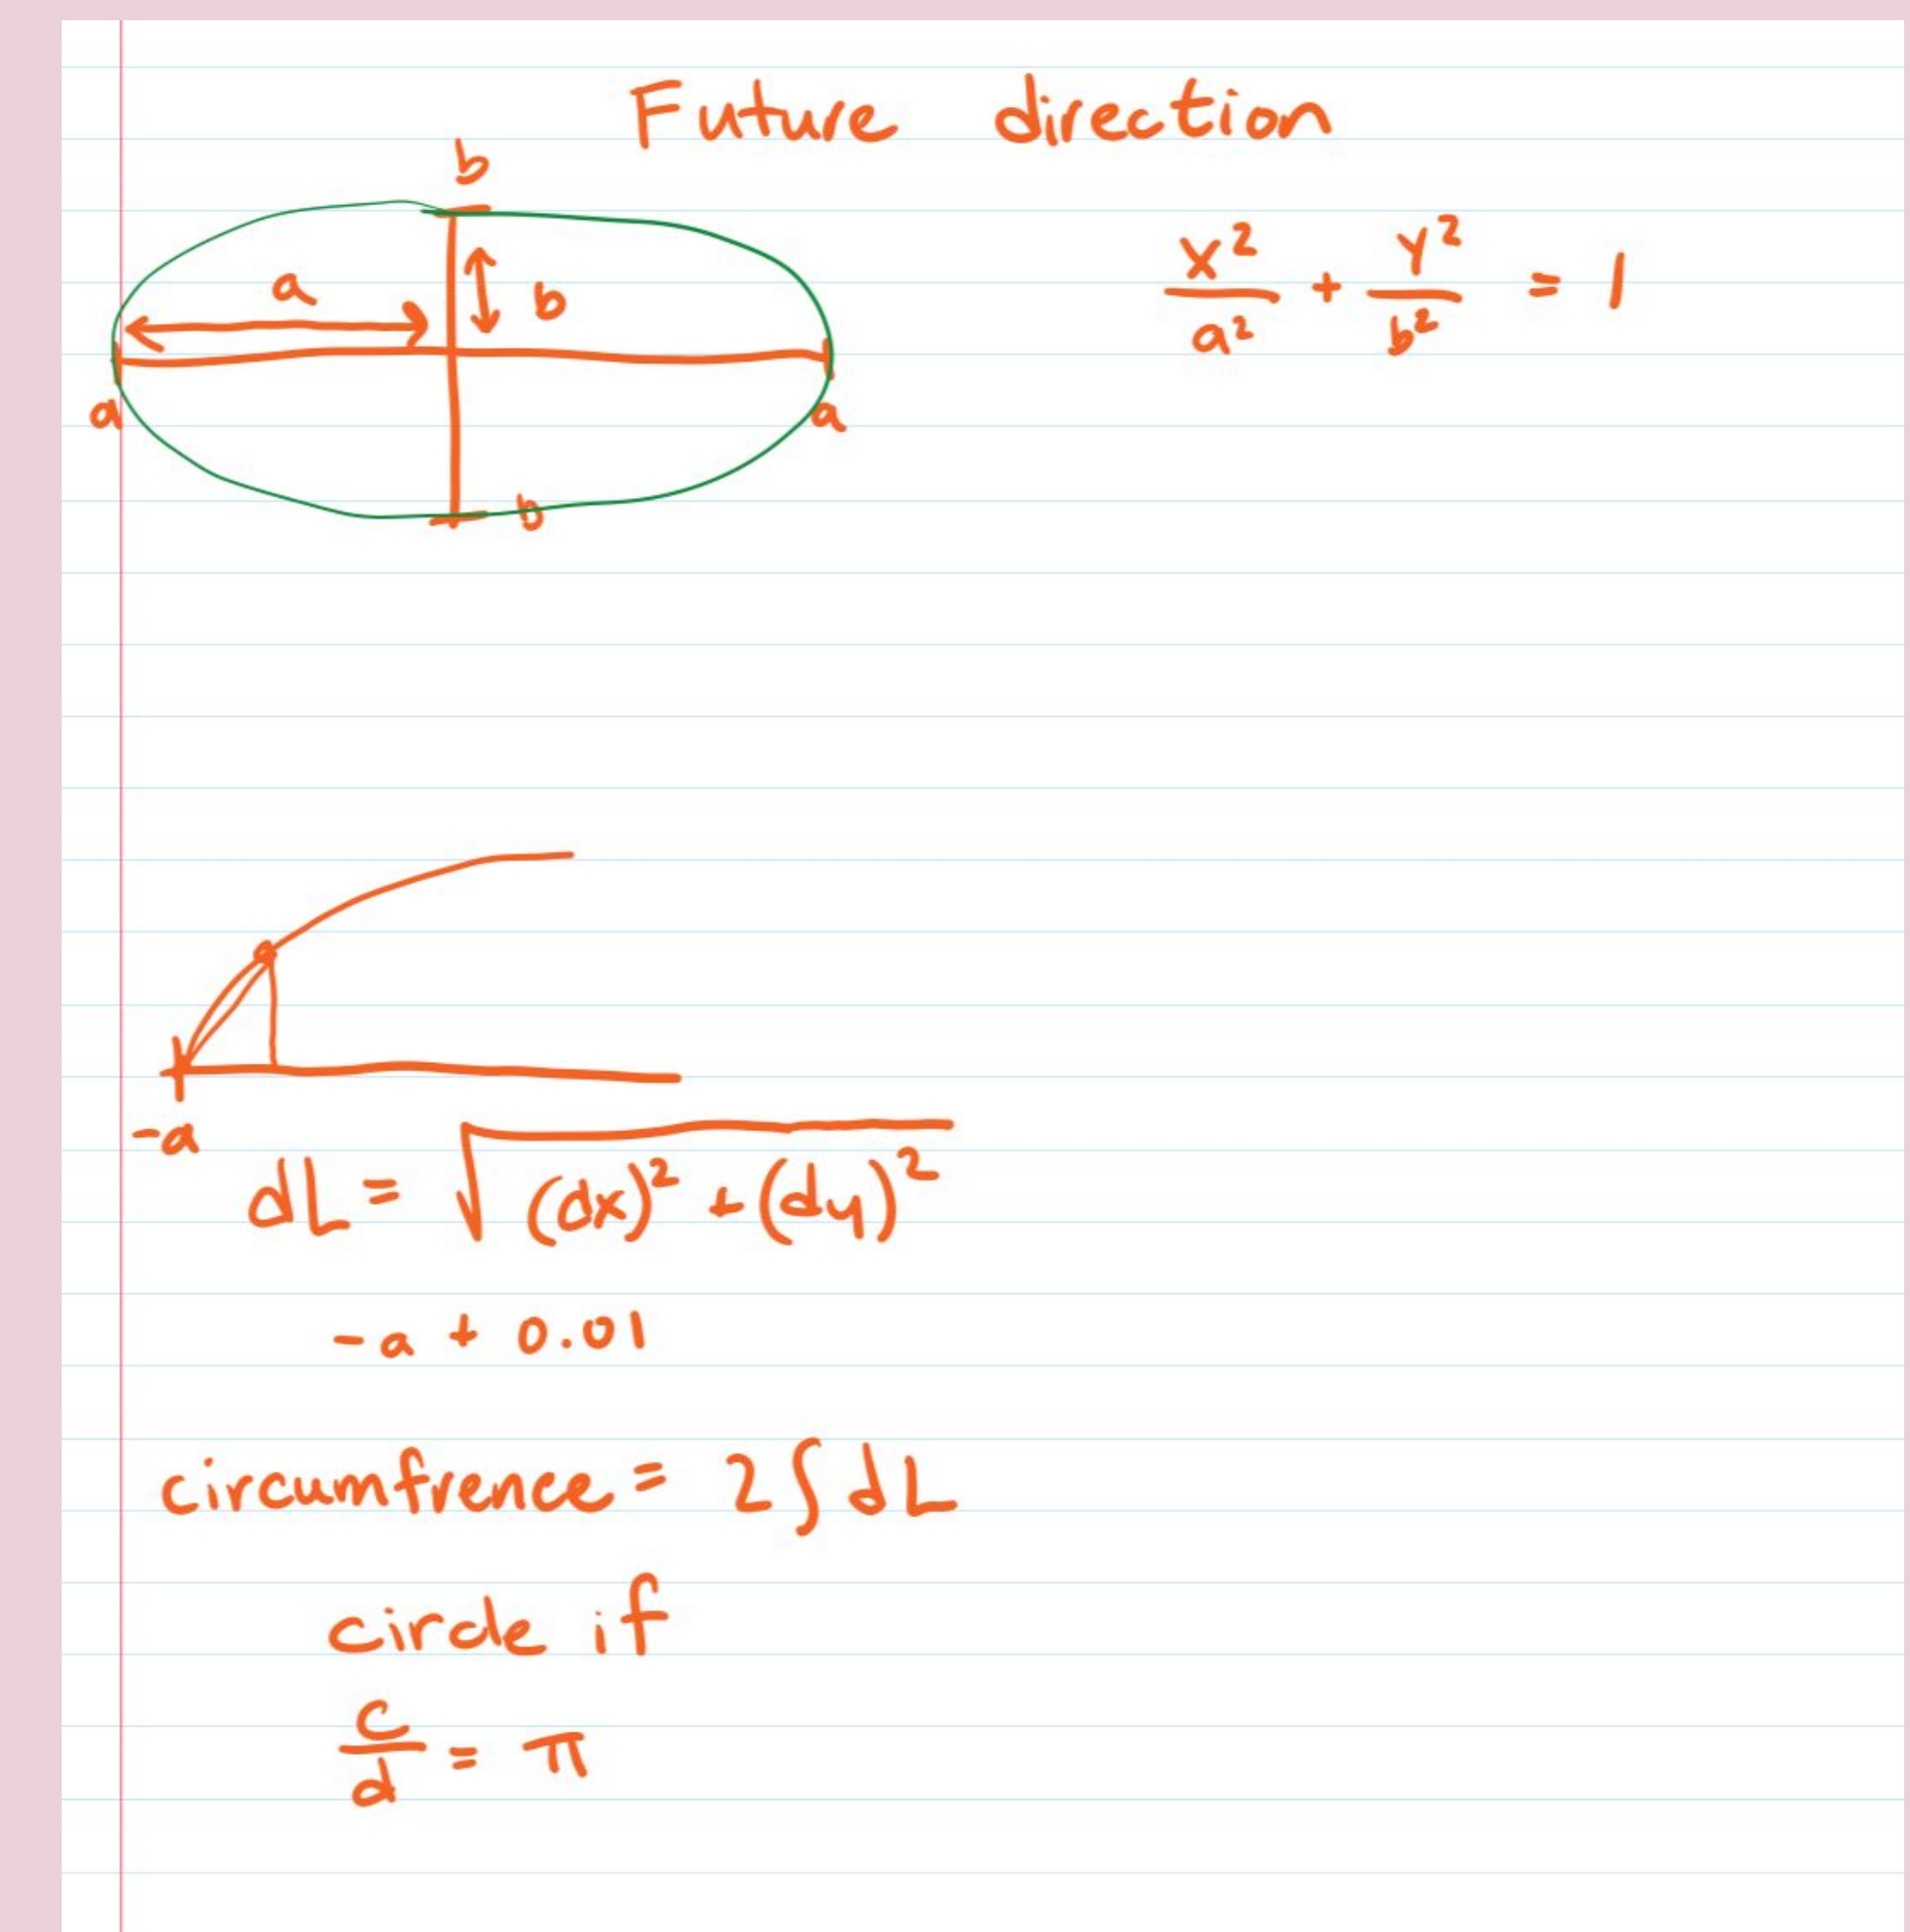 Future direction
b
a
b
a
a
b
x²/a² + y²/b² = 1
-a
dL = √((dx)² + (dy)²)
-a + 0.01
circumfrence = 2∫dL
circle if
c/d = π